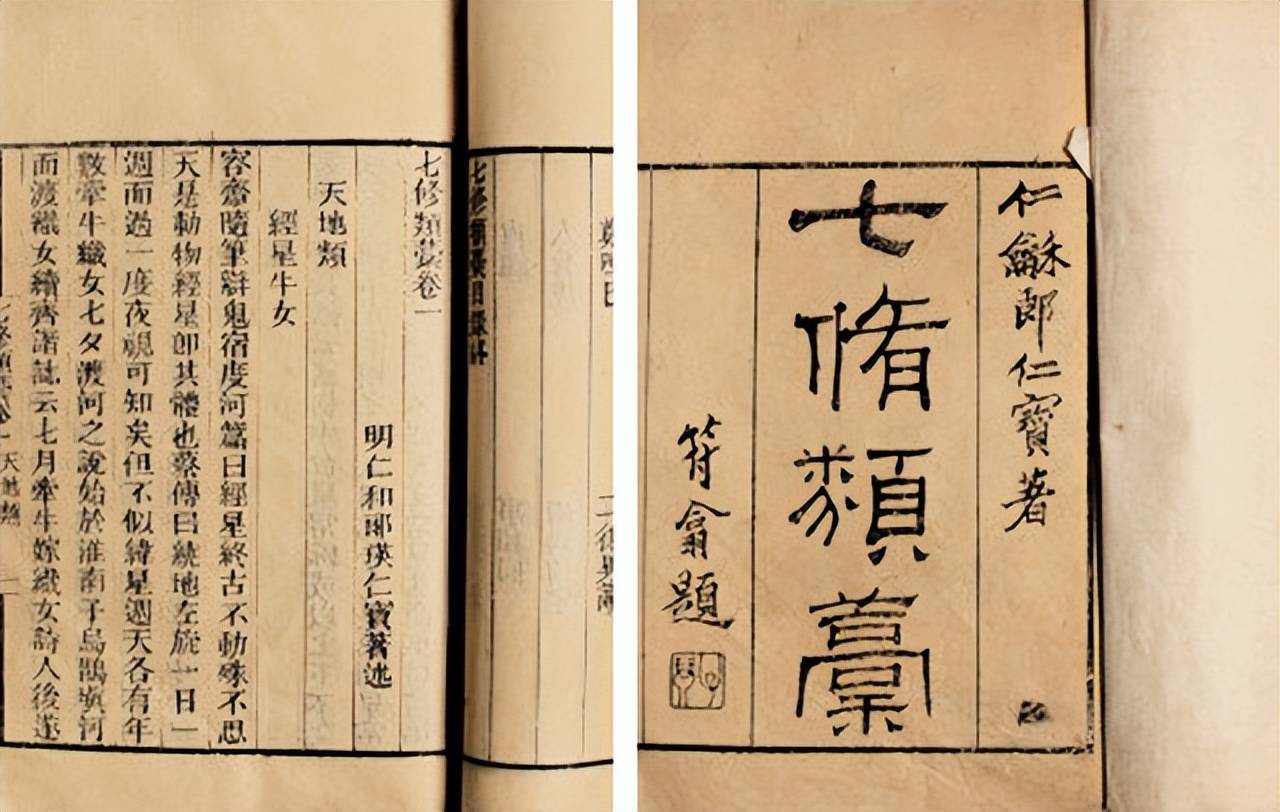 仁龢郎仁寶著
七脩類藁
符翕題
七修類藁卷一
明仁和郎瑛仁寶著述
天地類
經星牛女
容齋隨筆辯鬼宿度河篇曰經星終古不動殊不思
天是動物經星卽其體也蔡傳曰繞地左旋一日一
週而過一度夜視可知矣但不似緯星週天各有年
數牽牛織女七夕渡河之說始於淮南子烏鵲塡河
而渡織女續齊諧誌云七月牽牛嫁織女詩人後遂
天地類